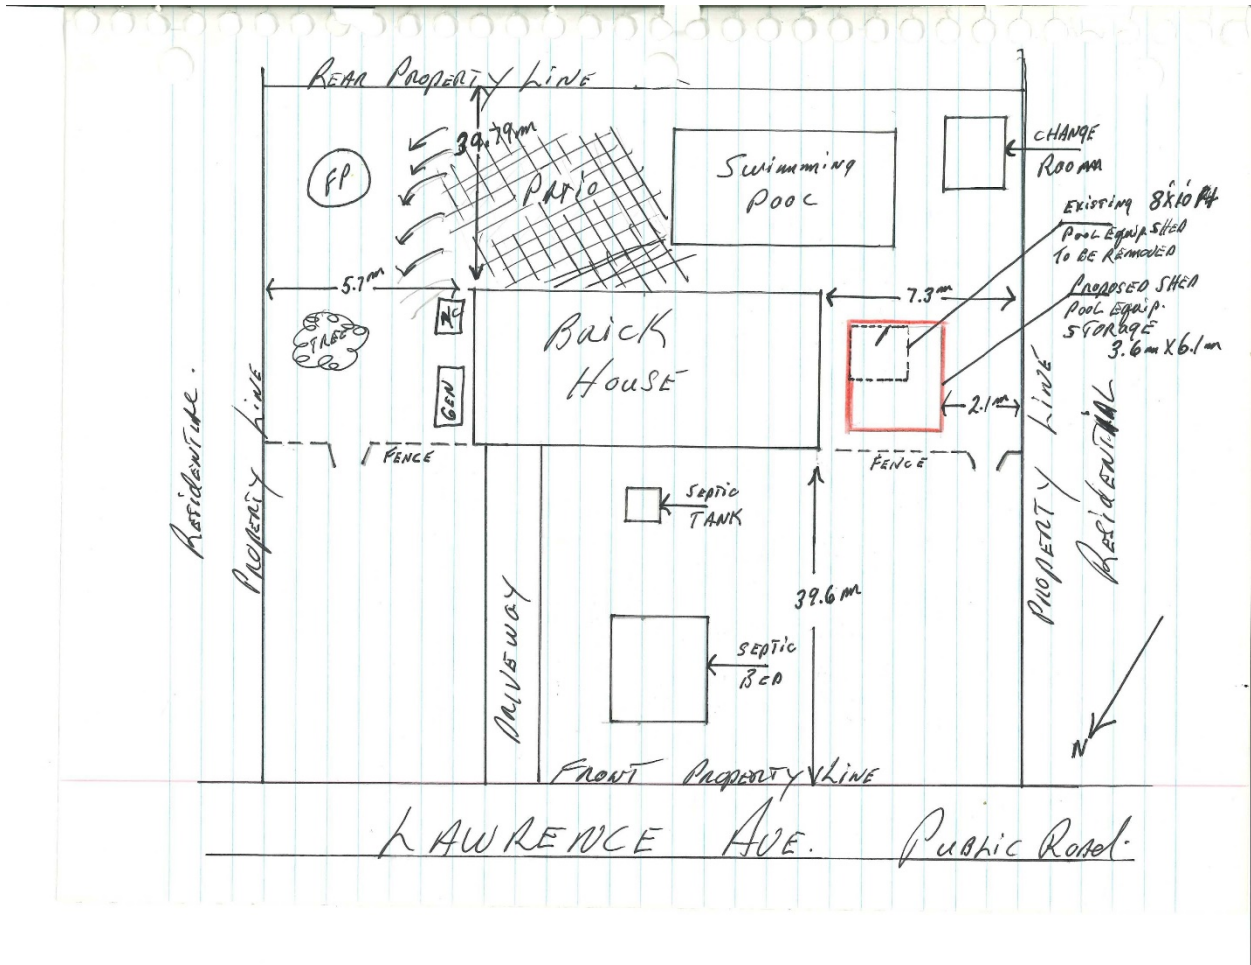 REAR PROPERTY LINE
39.79m
FP
PATIO
SWIMMING
POOL
CHANGE
ROOM
EXISTING 8'X10' Ft
POOL EQUIP SHED
TO BE REMOVED
PROPOSED SHED
POOL EQUIP.
STORAGE
3.6m X 6.1m
5.7m
7.3m
AC
TREE
BRICK
HOUSE
GEN
2.1m
RESIDENTIAL.
PROPERTY LINE
PROPERTY LINE
RESIDENTIAL
FENCE
FENCE
SEPTIC
TANK
39.6m
DRIVEWAY
SEPTIC
BED
N
FRONT PROPERTY LINE
LAWRENCE AVE. PUBLIC ROAD.